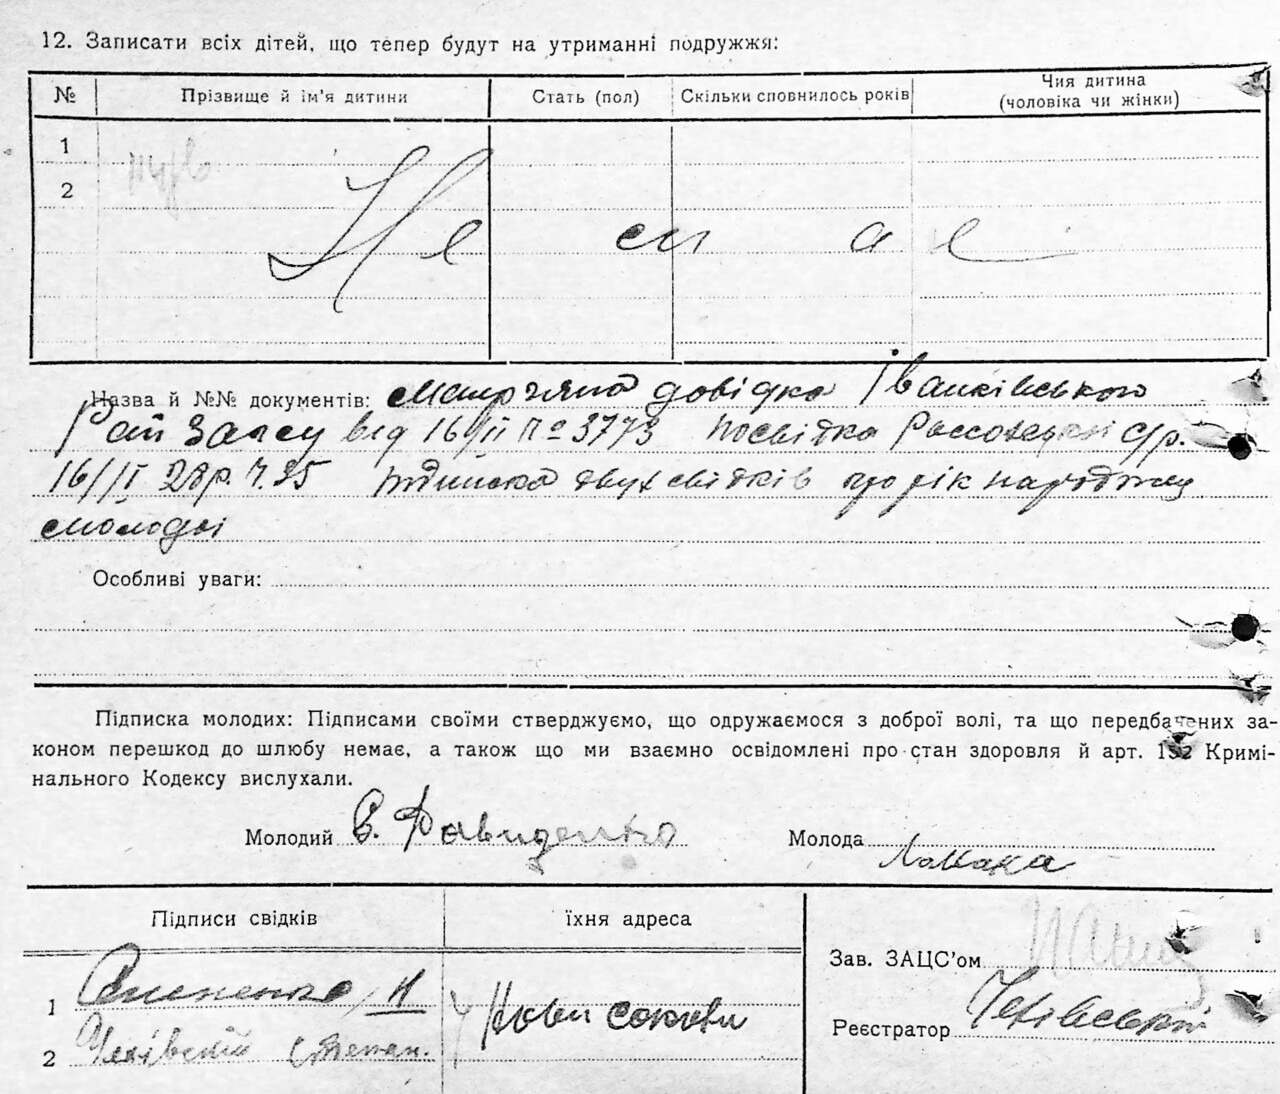 12. Записати всіх дітей, що тепер будут на утриманні подружжя:
№ Прізвище й ім’я дитини Стать (пол) Скільки сповнилось років Чия дитина (чоловіка чи жінки)
1
2
Не ма е
Назва й №№ документів: довідка Іванківського
Рай Загсу від 16/II № 3773 посвідка с/р.
16/II 28р. підписка двух свідків про рік народження
молодої
Особливі уваги:
Підписка молодих: Підписами своїми стверджуємо, що одружаємося з доброї волі, та що передбачених за-
коном перешкод до шлюбу немає, а також що ми взаємно освідомлені про стан здоровля й арт. 152 Кримі-
нального Кодексу вислухали.
Молодий Давиденко Молода Ломака
Підписи свідків їхня адреса
Зав. ЗАЦС’ом
1
Реєстратор Чехівський
2 Чехівский Степан.